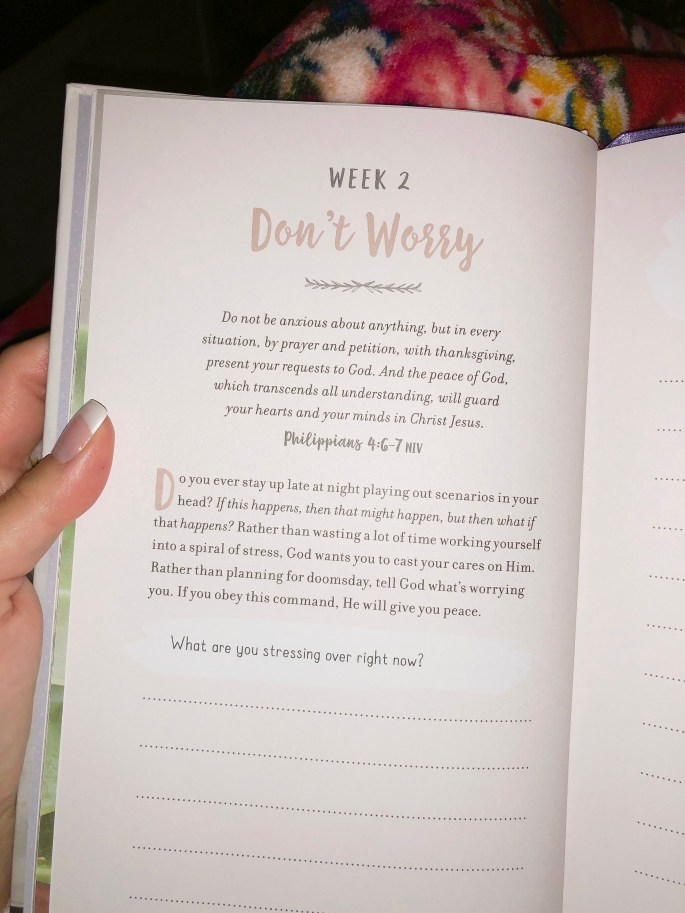 WEEK 2
Don't Worry
Do not be anxious about anything, but in every
situation, by prayer and petition, with thanksgiving,
present your requests to God. And the peace of God,
which transcends all understanding, will guard
your hearts and your minds in Christ Jesus.
Philippians 4:6-7 NIV
Do you ever stay up late at night playing out scenarios in your
head? If this happens, then that might happen, but then what if
that happens? Rather than wasting a lot of time working yourself
into a spiral of stress, God wants you to cast your cares on Him.
Rather than planning for doomsday, tell God what's worrying
you. If you obey this command, He will give you peace.
What are you stressing over right now?